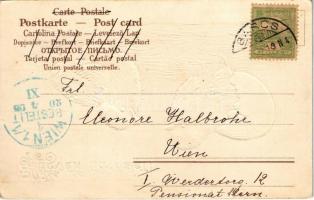 Carte Postale
Postkarte — Post card
Cartolina Postale — Levelezö Lap
Dopisnice — Brefkort — Briefkaart — Brevkort
ОТКРЫТОЕ ПИСЬМО.
Tarjeta postal — Cartão postal
Union postale universelle.
Frl.
Eleonore Halbrohr
Wien
I Werdertorg. 12
Pensionat Stern.
WIEN 1/1
BESTELLT
XI